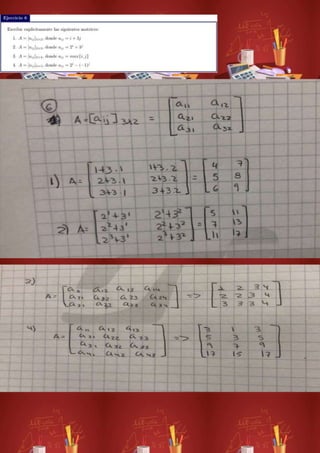 Ejercicio 6
Escribir explícitamente las siguientes matrices:
1. A = [a_ij]3×2, donde a_ij = i + 3j
2. A = [a_ij]3×2, donde a_ij = 2^i + 3^j
3. A = [a_ij]3×4, donde a_ij = max{i, j}
4. A = [a_ij]4×3, donde a_ij = 2^i − (−1)^j
6
A = [aij] 3×2 = [a11 a12
a21 a22
a31 a32]
1) A = [1+3.1 1+3.2
2+3.1 2+3.2
3+3.1 3+3.2] = [4 7
5 8
6 9]
2) A = [2^1+3^1 2^1+3^2
2^2+3^1 2^2+3^2
2^3+3^1 2^3+3^2] = [5 11
7 13
11 17]
3)
A = [a11 a12 a13 a14
a21 a22 a23 a24
a31 a32 a33 a34] => [1 2 3 4
2 2 3 4
3 3 3 4]
4)
A = [a11 a12 a13
a21 a22 a23
a31 a32 a33
a41 a42 a43] => [3 1 3
5 3 5
9 7 9
17 15 17]